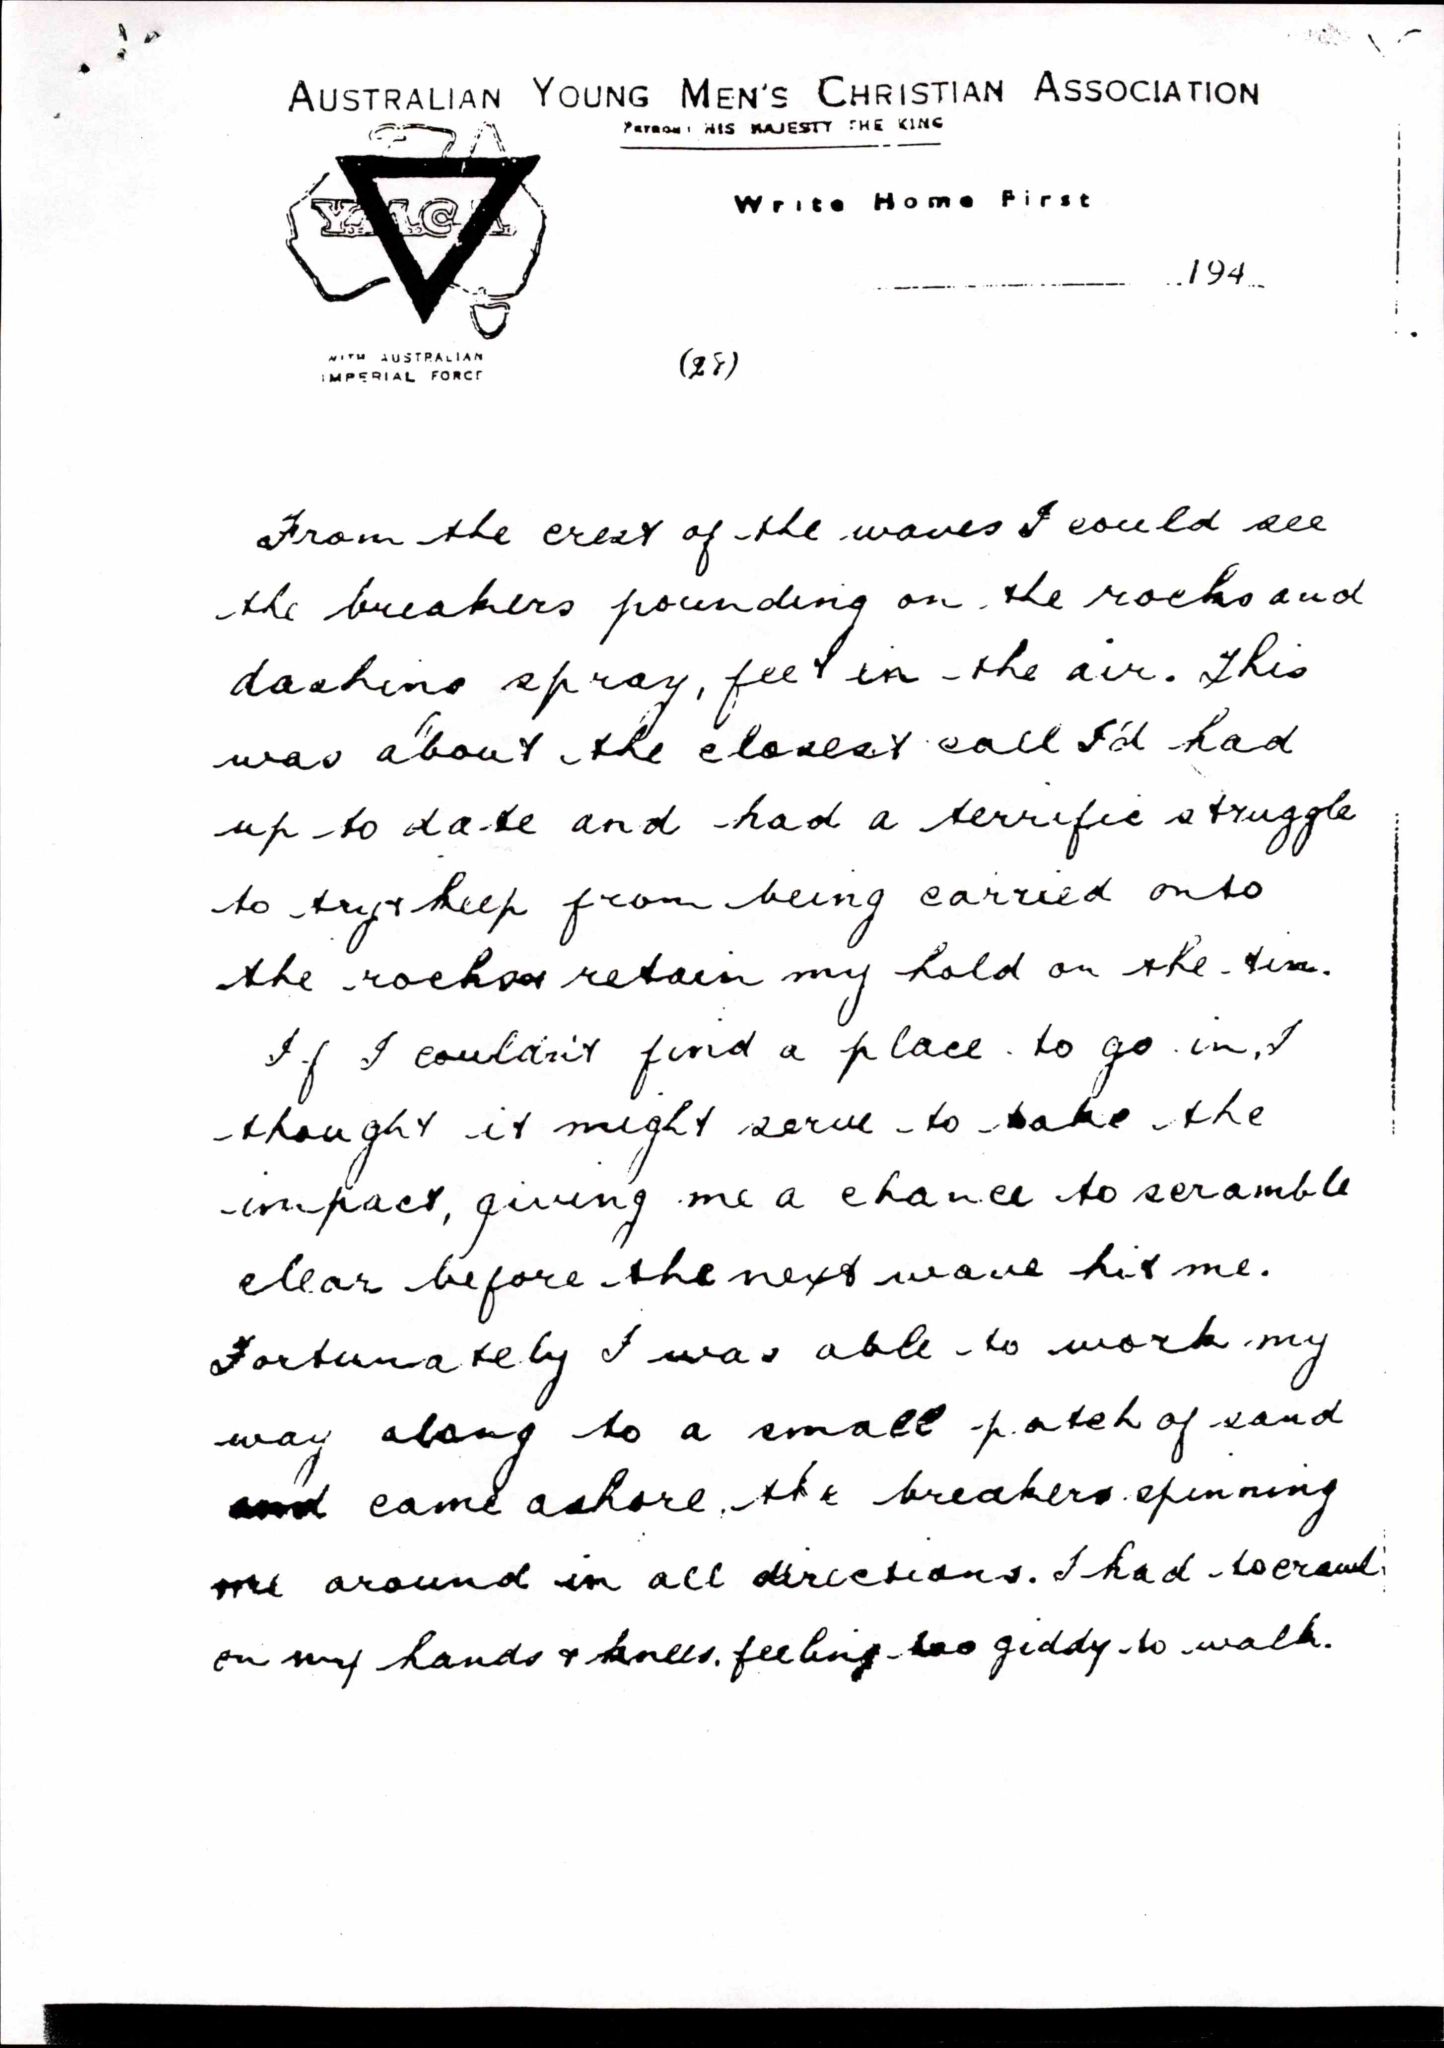 AUSTRALIAN YOUNG MEN'S CHRISTIAN ASSOCIATION
PATRON: HIS MAJESTY THE KING
Y.M.C.A.
Write Home First
194
WITH AUSTRALIAN
IMPERIAL FORCE
(28)
From the crest of the waves I could see
the breakers pounding on the rocks and
dashing spray, feet in the air. This
was about the closest call I'd had
up to date and had a terrific struggle
to try & keep from being carried onto
the rocks & retain my hold on the tin.
If I couldn't find a place to go in, I
thought it might serve to take the
impact, giving me a chance to scramble
clear before the next wave hit me.
Fortunately I was able to work my
way along to a small patch of sand
and came ashore, the breakers spinning
me around in all directions. I had to crawl
on my hands & knees, feeling too giddy to walk.